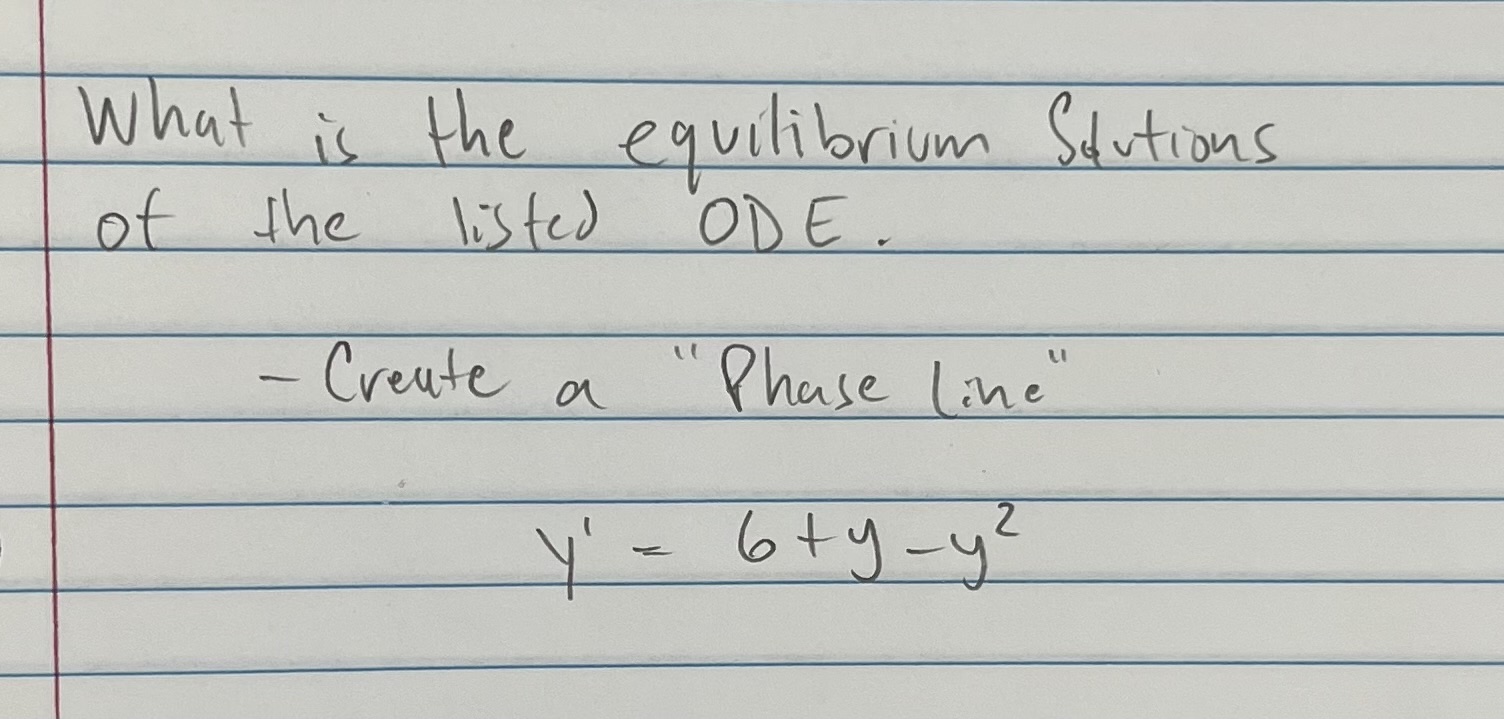 What is the equilibrium Solutions
of the listed ODE.
- Create a "Phase line"
y' = 6+y-y²